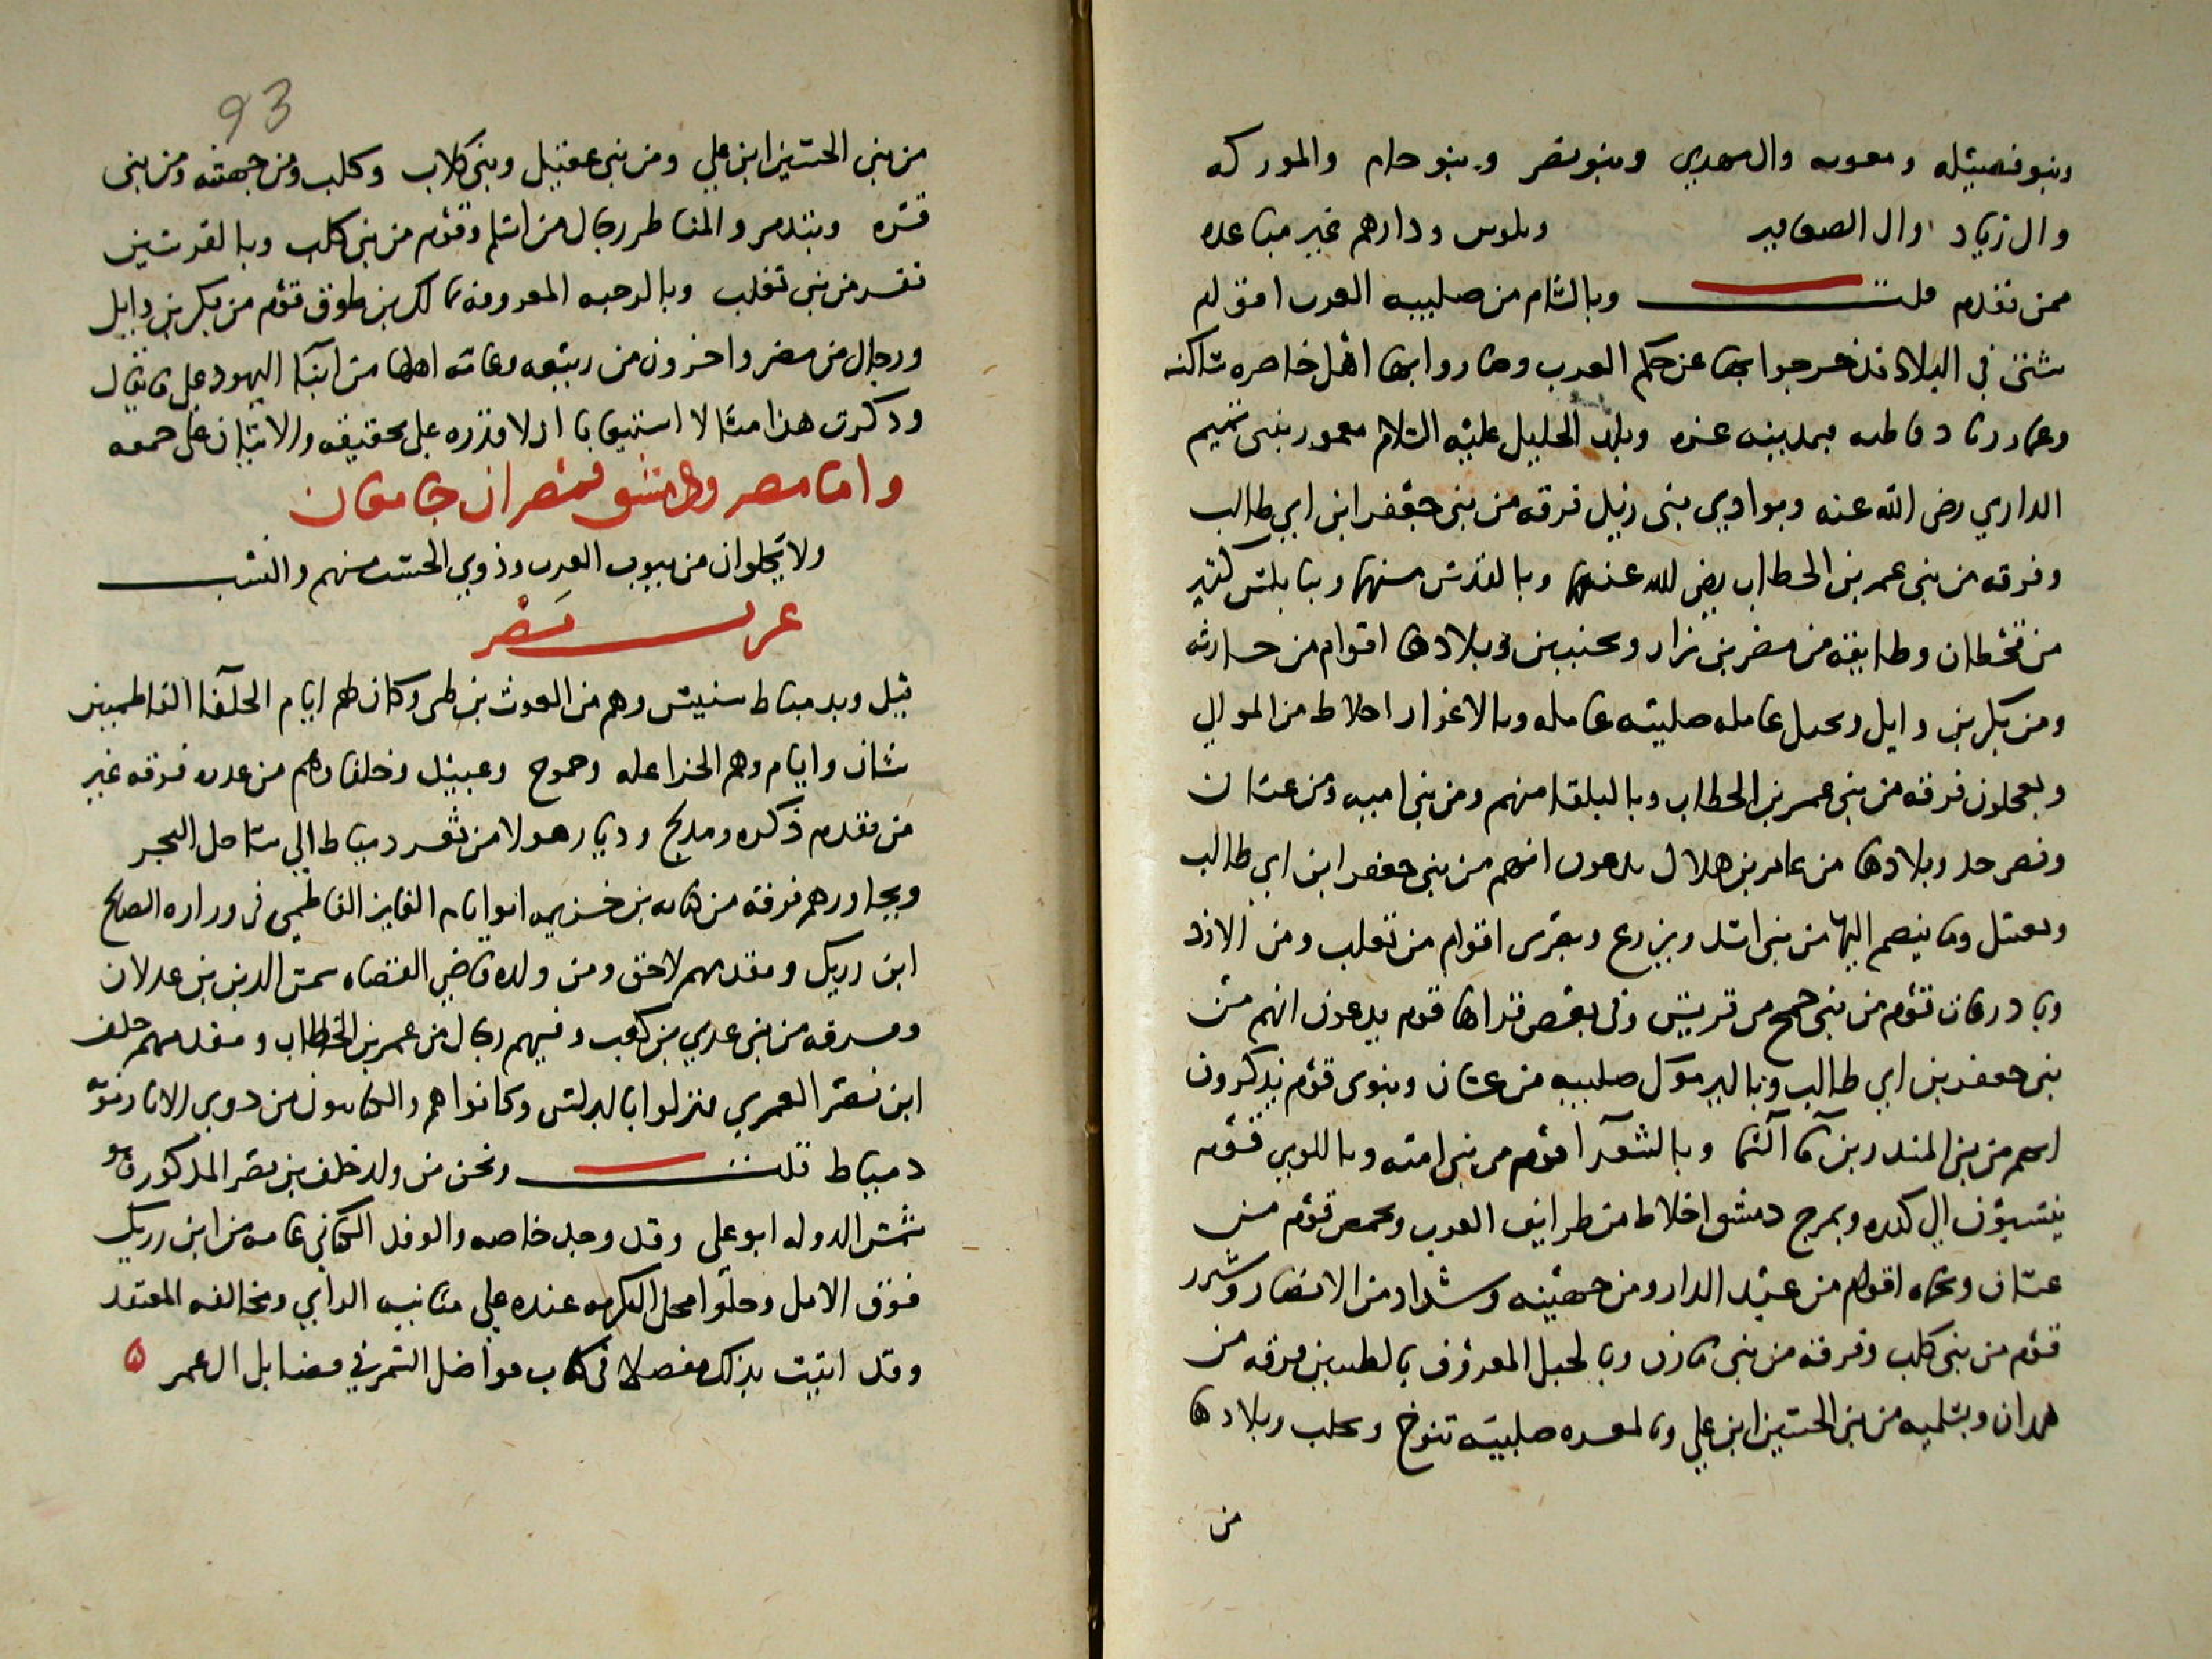 وبنو فصيله ومعويه وال مهدي وبنو نصر وبنو حام والموركه
وال زياد وال الصعافير وبلوس ودارهم غير مباعده
ممن تقدم قلت وبالشام من صليبه العرب اقوام
شتى في البلاد قد خرجوا بها عن حكم العرب وصاروا بها اهل حاضره ساكنه
وعمار بمدينه غزه وبلد الخليل عليه السلام معمور ببنى تميم
الداري رضى الله عنه وبوادي بنى زيل فرقه من بنى جعفر ابن ابي طالب
وفرقه من بنى عمر بن الخطاب رضى الله عنهما وبالقدس منهما وبنابلس كثير
من قحطان وطايفه من مضر بن نزار وبجنين وبلادها اقوام من حارثه
ومن بكر بن وايل وبجبل عامله صليبه عامله وبالاغوار اخلاط من الموالي
وبعجلون فرقه من بنى عمر بن الخطاب وبالبلقا منهم ومن بنى اميه ومن غسان
وبصرخد وبلادها من عامر بن هلال يدعون انهم من بنى جعفر ابن ابي طالب
وما ينضم اليها من بنى اسد وبزرع وبصرى اقوام من تغلب ومن الازد
وبادرعات قوم من بنى جمح من قريش وفى بعض قراها قوم يدعون انهم من
بنى جعفر بن ابي طالب وباليرموك صليبه من غسان وبنوى قوم يذكرون
انهم من بنى المنذر بن ما السما وبالشعرا قوم من بنى اميه وباللوى قوم
ينتسبون الي كنده وبمرج دمشق اخلاط من طرايف العرب وبحمص قوم من
غسان وبحماه اقوام من عبد الدار ومن جهينه وشداد من الانصار وبشيزر
قوم من بنى كلب وفرقه من بنى مازن وبالجبل المعروف بالطنين فرقه من
همدان وبسلميه من بنى الحسين ابن علي وبالمعره صليبه تنوخ وبحلب وبلادها
من
93
من بنى الحسين ابن علي ومن بنى عقيل وبنى كلاب وكلب ومن جهينه ومن بنى
قره وبتدمر والمناظر رجال من اسلم وقوم من بنى كلب وبالقريتين
نفر من بنى تغلب وبالرحبه المعروفه بمالك بن طوق قوم من بكر بن وايل
ورجال من مضر واخرون من ربيعه وعانه اهلها من ابنا اليهود على ما يقال
وذكرت هذا مثالا لا استيعابا اذ لا قدره على تحقيقه والاتيان على جمعه
واما مصر ودمشق فمصران جامعان
ولا يخلوان من بيوت العرب وذوي الحسب منهم والنسب
عرب مصر
قيل وبدمياط سنبس وهم من الغوث بن طى وكان لهم ايام الخلفا الفاطميين
شان وايام وهم الخزاعله وجموح وعبيد وحلفاوهم من عدره فرقه غير
من تقدم ذكره ومدلج وديار هولا من ثغر دمياط الي ساحل البحر
ويجاورهم فرقه من كنانه بن خزيمه اتوا ايام الفايز الفاطمي فى وزاره الصالح
ابن رزيك ومقدمهم لاحق ومن ولده قاضي القضاه شمس الدين بن عدلان
وفرقه من بنى عدي بن كعب وفيهم رجال من عمر بن الخطاب ومقدمهم خلف
ابن نصر العمري فنزلوا بالبرلس وكانوا هم والكنانيون من ذوي الاثار فى نوبه
دمياط قلت ونحن من ولد خلف بن نصر المذكور وهو
شمس الدوله ابو علي وقد وجد خاصه والوفد الكناني عامه من ابن رزيك
فوق الامل وحلوا محل التكرمه عنده علي مباينه الراي ومخالفه المعتقد
وقد اتيت بذلك مفصلا فى كتاب فواضل السمر في فضايل ال عمر